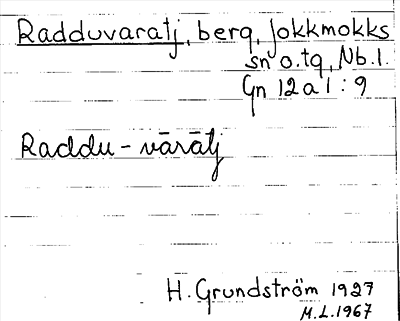 Radduvaratj, berg, Jokkmokks
sn o. tg, Nb. l.
Gn 12 a 1 : 9
Raddu - vārātj
H. Grundström 1927
M.L. 1967